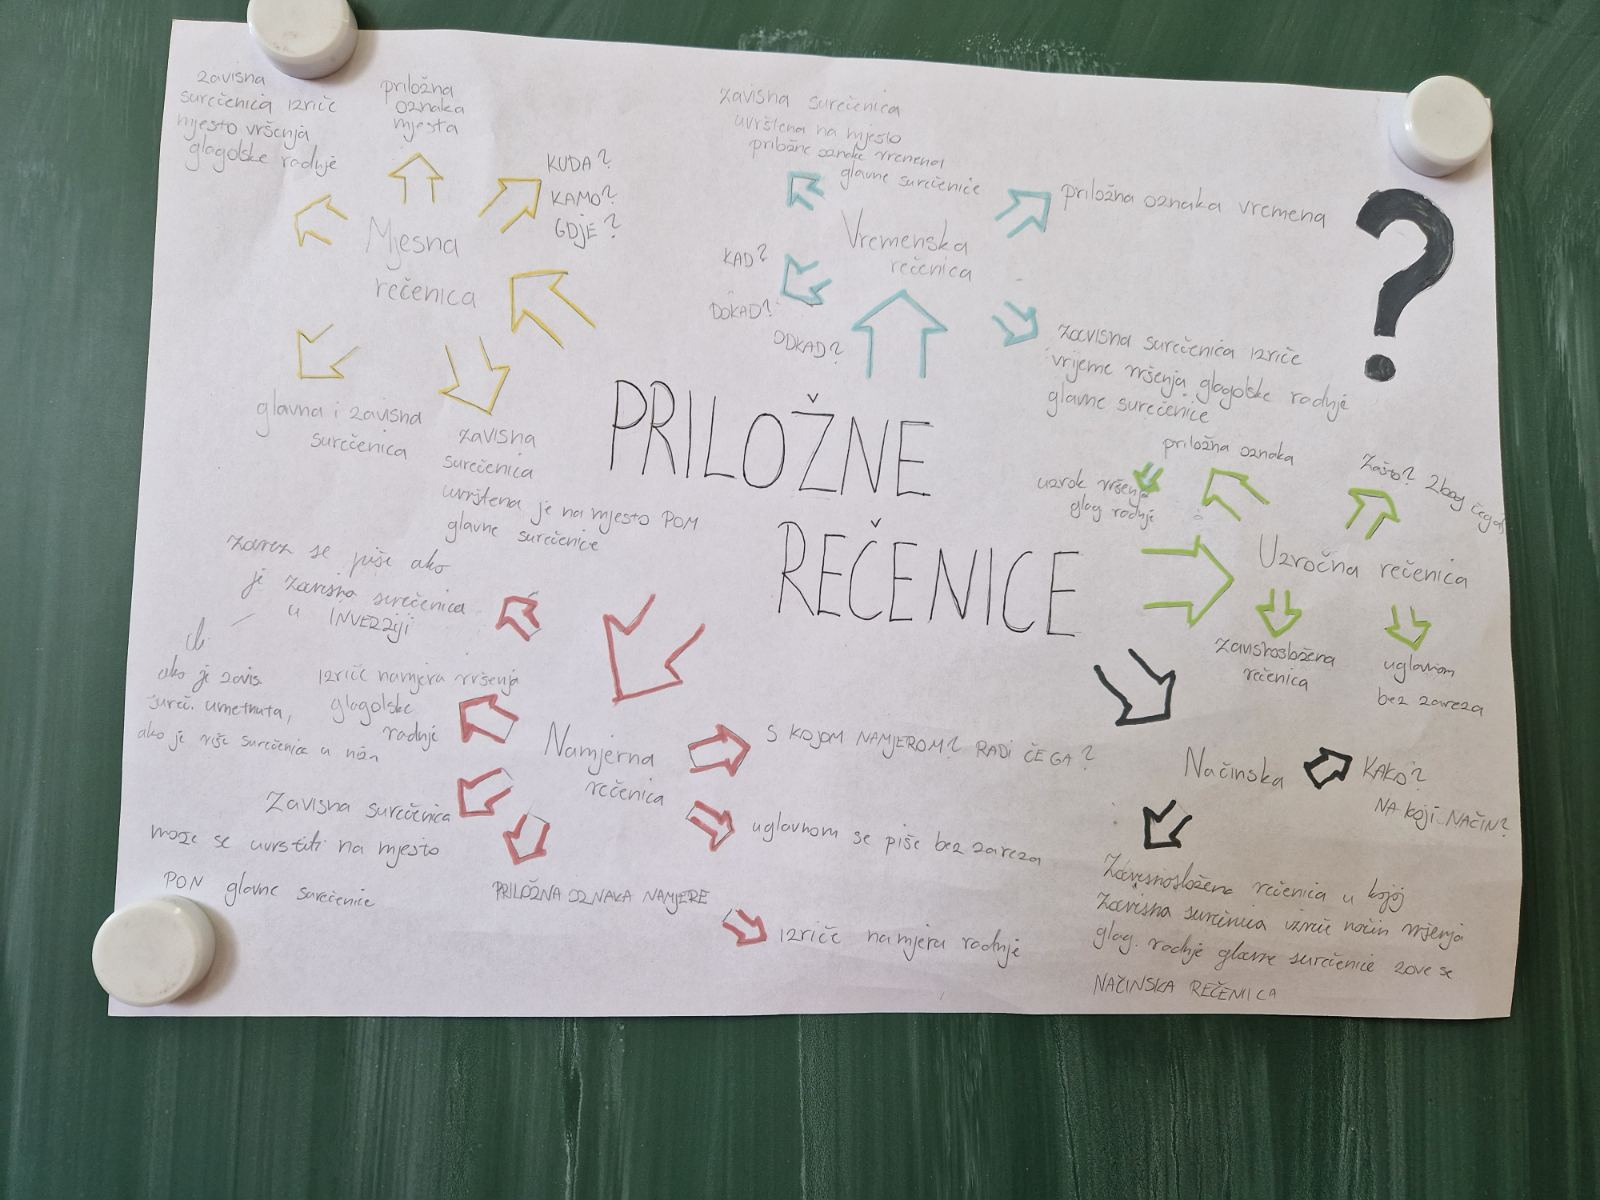 zavisna
surečenica izriče
mjesto vršenja
glagolske radnje
priložna
oznaka
mjesta
KUDA?
KAMO?
GDJE?
Mjesna
rečenica
glavna i zavisna
surečenica
zavisna
surečenica
uvrštena je na mjesto POM
glavne surečenice
zavisna surečenica
uvrštena na mjesto
priložne oznake vremena
glavne surečenice
priložna oznaka vremena
Vremenska
rečenica
KAD?
DOKAD?
ODKAD?
zavisna surečenica izriče
vrijeme vršenja glagolske radnje
glavne surečenice
?
PRILOŽNE
REČENICE
priložna oznaka
uzrok vršenja
glag radnje
Zašto? Zbog čega?
Uzročna rečenica
zavisnosložena
rečenica
uglavnom
bez zareza
zarez se piše ako
je zavisna surečenica
u INVERZIJI
ili
ako je zavis.
sureč. umetnuta,
ako je više surečenica u
izriče namjeru vršenja
glagolske
radnje
Namjerna
rečenica
S KOJOM NAMJEROM? RADI ČEGA?
uglavnom se piše bez zareza
Zavisna surečenica
može se uvrstiti na mjesto
PON glavne surečenice
PRILOŽNA OZNAKA NAMJERE
izriče namjeru radnje
Načinska
KAKO?
NA KOJI NAČIN?
Zavisnosložena rečenica u kojoj
zavisna surečenica izriče način vršenja
glag. radnje glavne surečenice zove se
NAČINSKA REČENICA